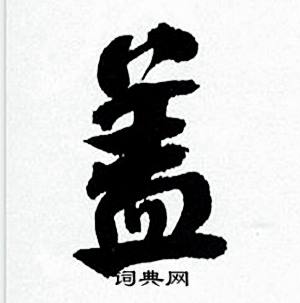 盖
词典网